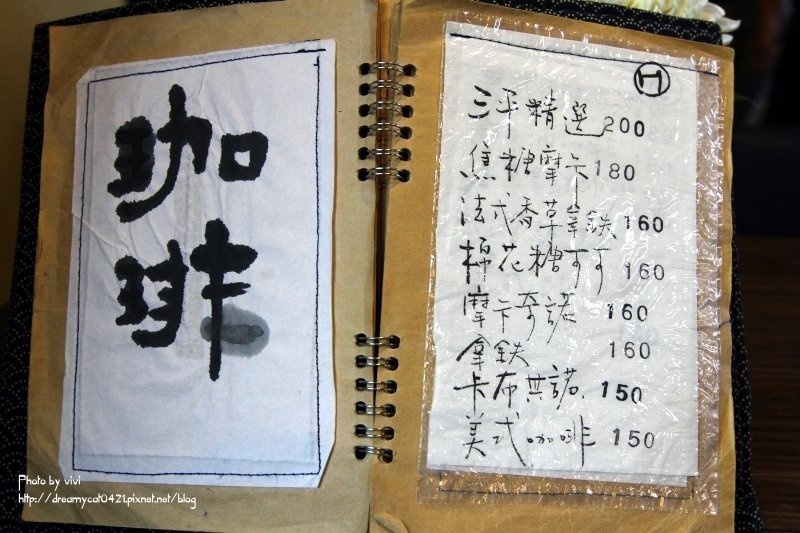 珈
琲
H
三平精選 200
焦糖摩卡 180
法式香草拿鉄 160
棉花糖可可 160
摩卡奇諾 160
拿鉄 160
卡布其諾 150
美式咖啡 150
Photo by vivi
http://dreamycat0421.pixnet.net/blog